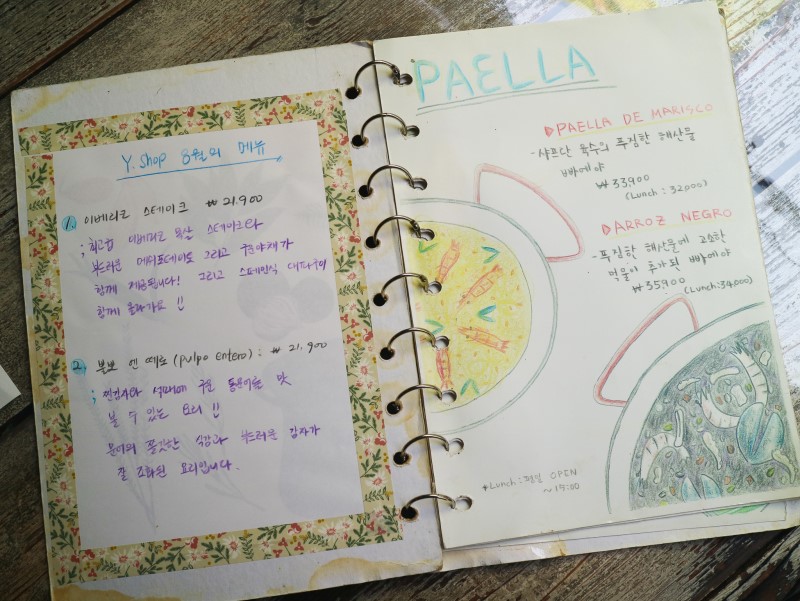 Y. Shop 8월의 메뉴
1. 이베리코 스테이크 ₩ 21.900
; 최고급 이베리코 목살 스테이크와
부드러운 매쉬포테이토 그리고 구운야채가
함께 제공됩니다! 그리고 스페인식 대파구이
함께 올라가요 !!
2. 뽈뽀 엔떼로 (pulpo entero) : ₩ 21.900
; 찐감자와 석쇠에 구운 돌문어를 맛
볼 수 있는 요리 !!
문어의 쫄깃한 식감과 부드러운 감자가
잘 조화된 요리입니다.
PAELLA
PAELLA DE MARISCO
- 샤프란 육수의 푸짐한 해산물
빠에야
₩33,900
(Lunch : 32,000)
ARROZ NEGRO
- 푸짐한 해산물에 고소한
먹물이 추가된 빠에야
₩35900
(Lunch:34,000)
*Lunch : 평일 OPEN
~15:00